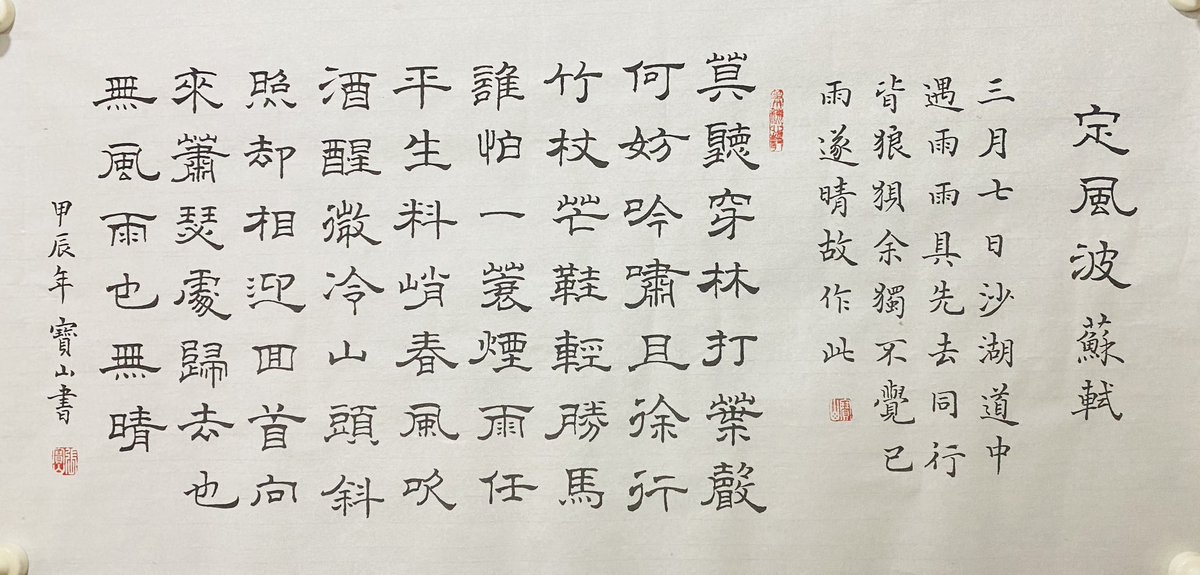 定風波 蘇軾
三月七日沙湖道中
遇雨雨具先去同行
皆狼狽余獨不覺已
雨遂晴故作此
莫聽穿林打葉聲
何妨吟嘯且徐行
竹杖芒鞋輕勝馬
誰怕一蓑煙雨任
平生料峭春風吹
酒醒微冷山頭斜
照却相迎回首向
來蕭瑟處歸去也
無風雨也無晴
甲辰年 寶山書
張寶山